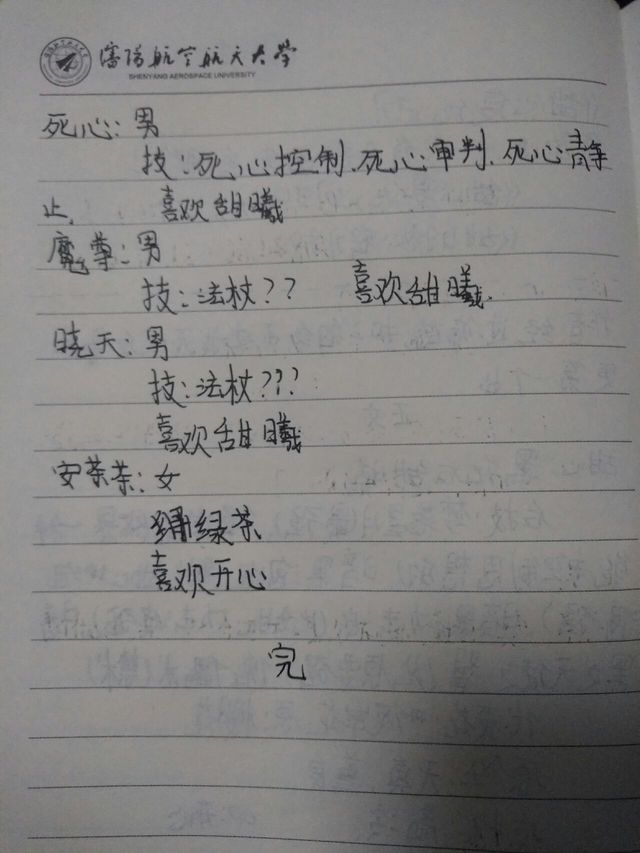 瀋陽航空航天大学
SHENYANG AEROSPACE UNIVERSITY
死心:男
技:死心控制、死心审判、死心静
止, 喜欢甜曦
魔尊:男
技:法杖?? 喜欢甜曦.
晓天:男
技:法杖???
喜欢甜曦
安茶茶:女
绿茶
喜欢开心
完